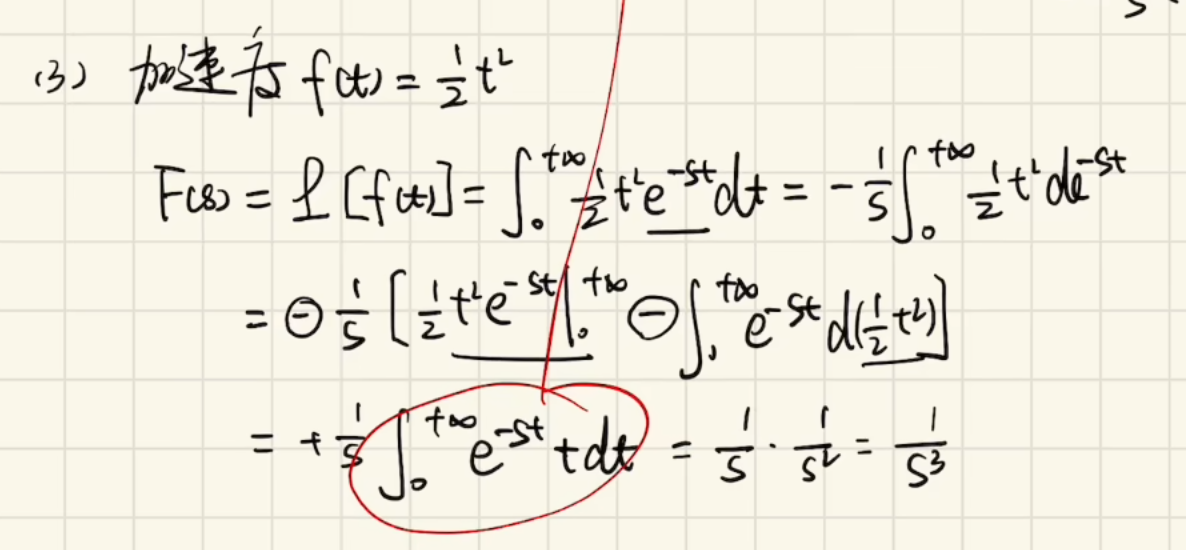 (3) 加速度 f(t) = 1/2 t²
F(s) = ℒ[f(t)] = ∫₀^{+∞} 1/2 t² e^{-st} dt = -1/s ∫₀^{+∞} 1/2 t² de^{-st}
= ⊖ 1/s [1/2 t² e^{-st} |₀^{+∞} ⊖ ∫₀^{+∞} e^{-st} d(1/2 t²)]
= + 1/s ∫₀^{+∞} e^{-st} t dt = 1/s · 1/s² = 1/s³